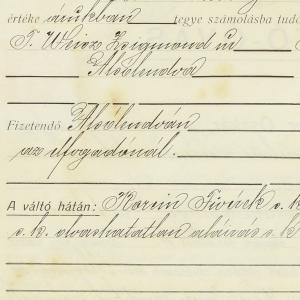 értéke árukban tegye számolásba tudó
T. Weisz Zsigmond úr
Alsólendva
Fizetendő Alsólendván
az elfogadónál.
A váltó hátán: Korein Tivick s. k
s. k. olvashatatlan aláírás s. k